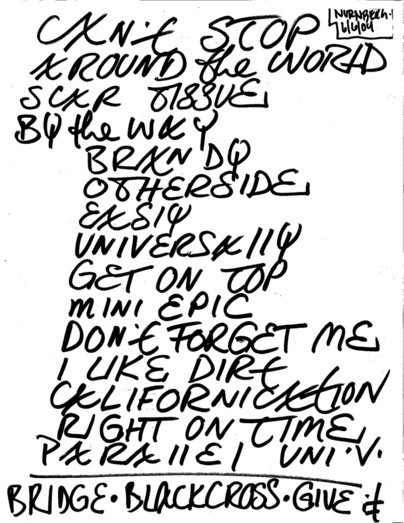 CAN'T STOP
NURNBERG.
6/6/04
AROUND the WORLD
SCAR TISSUE
BY the WAY
BRANDY
OTHERSIDE
EASIY
UNIVERSAllY
GET ON TOP
MINI EPIC
DON'T FORGET ME
I LIKE DIRT
CALIFORNICATION
RIGHT ON TIME
PARAllEl UNI.V.
BRIDGE · BLACKCROSS · GIVE it